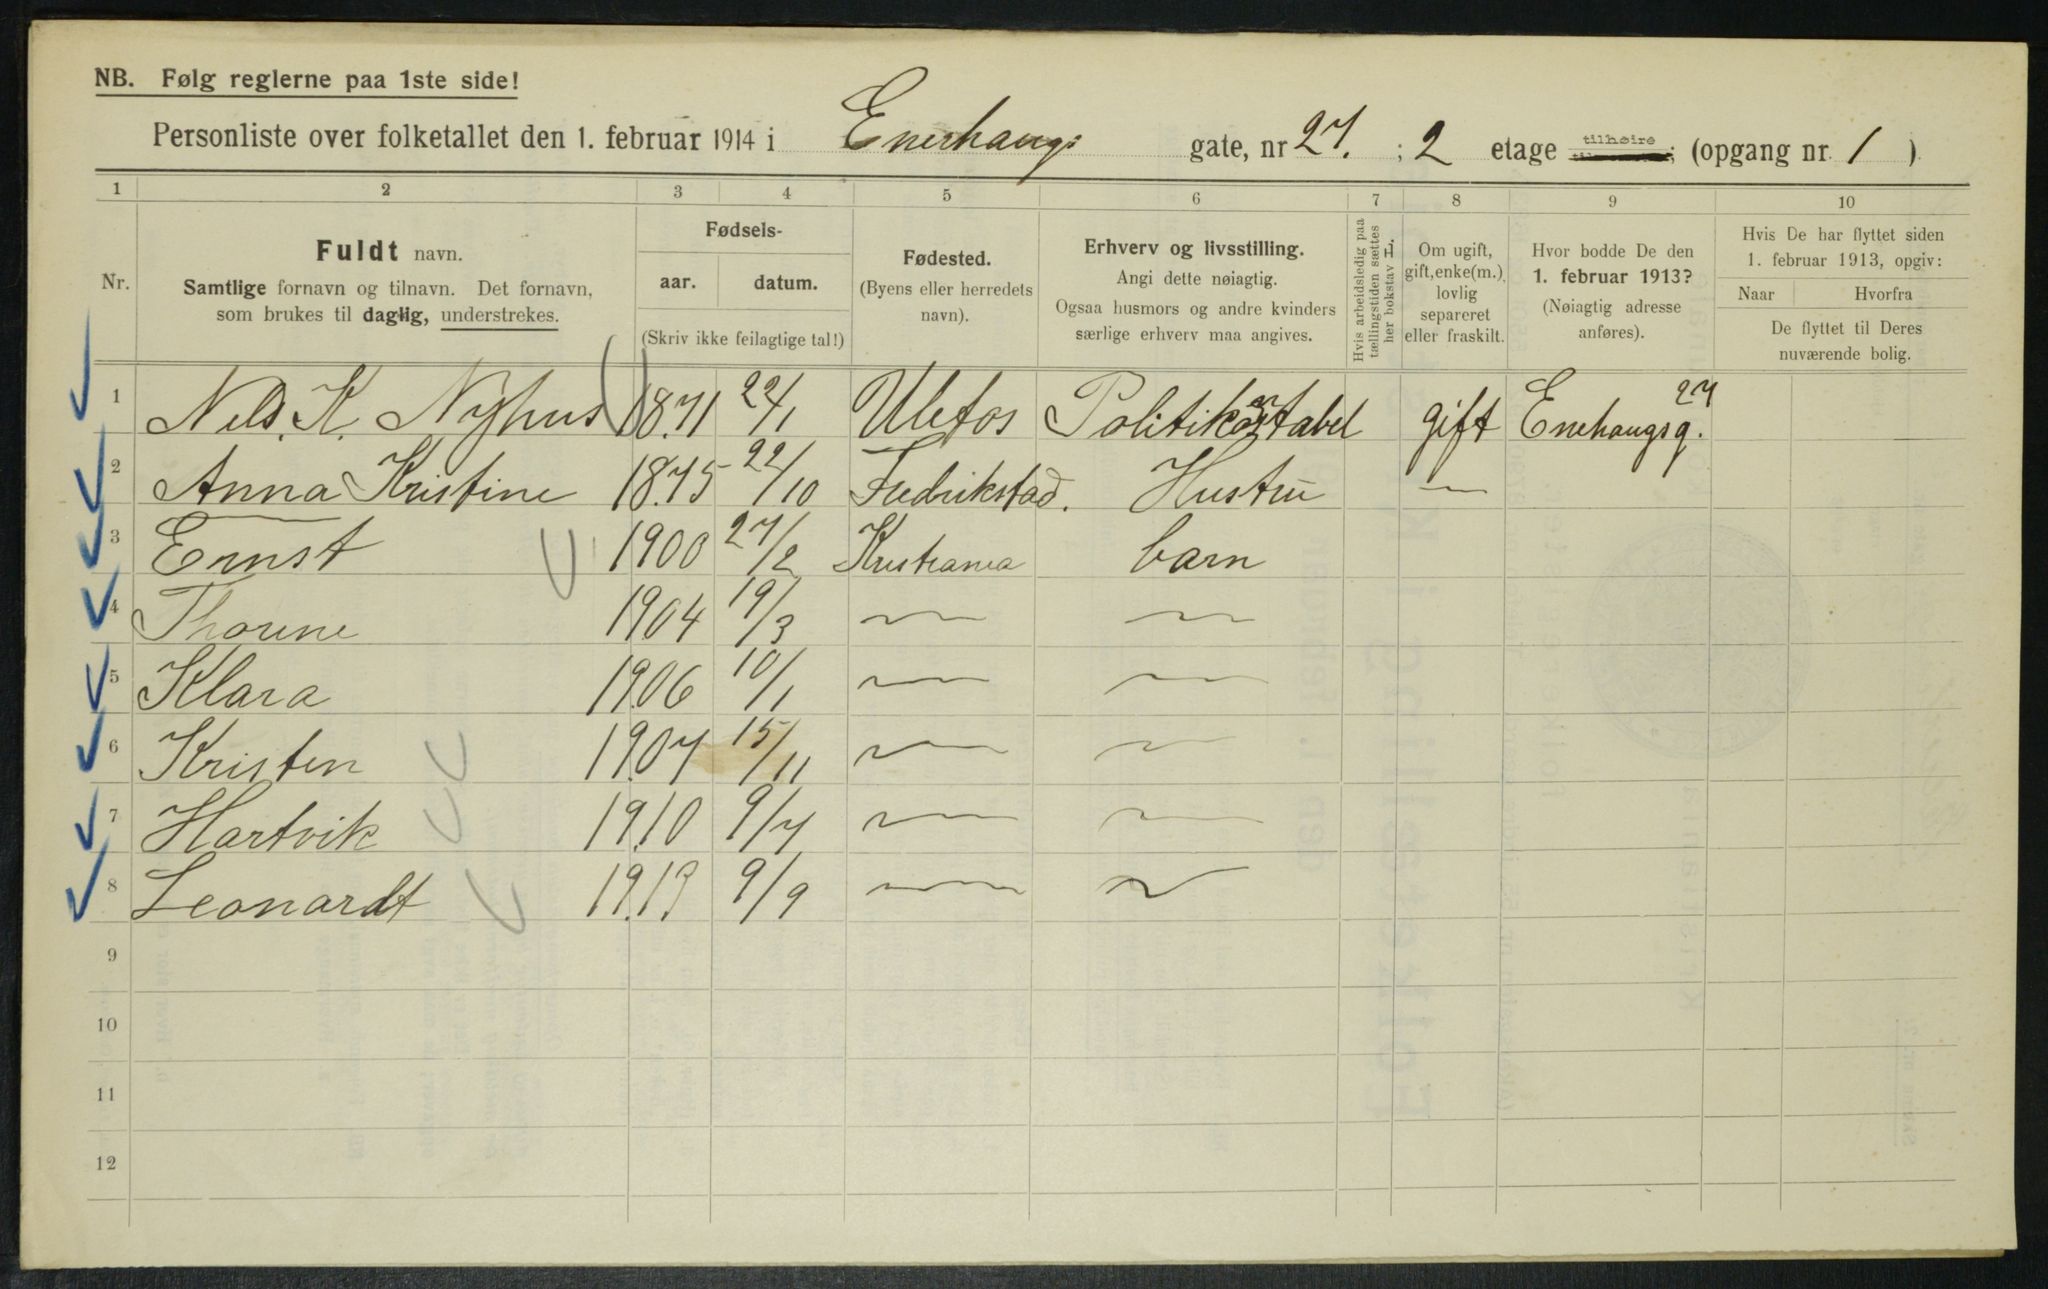 NB. Følg reglerne paa 1ste side!
Personliste over folketallet den 1. februar 1914 i Enerhaugs gate, nr 27. ; 2 etage tilhøire (opgang nr. 1 )
1 2 3 4 5 6 7 8 9 10
Nr.
Fuldt navn.
Samtlige fornavn og tilnavn. Det fornavn,
som brukes til daglig, understrekes.
Fødsels-
aar. datum.
(Skriv ikke feilagtige tal!)
Fødested.
(Byens eller herredets
navn).
Erhverv og livsstilling.
Angi dette nøiagtig.
Ogsaa husmors og andre kvinders
særlige erhverv maa angives.
Hvis arbeidsledig paa
tællingstiden sættes
her bokstav L.
Om ugift,
gift, enke(m.),
lovlig
separeret
eller fraskilt.
Hvor bodde De den
1. februar 1913?
(Nøiagtig adresse
anføres).
Hvis De har flyttet siden
1. februar 1913, opgiv:
Naar Hvorfra
De flyttet til Deres
nuværende bolig.
1 Nils. K. Nyhus 1871 22/1 Ulefos Politikonstabel gift Enehaugsg. 27
2 Anna Kristine 1875 22/10 Fredrikstad. Hustru —
3 Ernst 1900 27/2 Kristiania barn
4 Thorine 1904 19/3 — —
5 Klara 1906 10/1 — —
6 Kristen 1907 15/11 — —
7 Hartvik 1910 9/7 — —
8 Leonardt 1913 9/9 — —
9
10
11
12